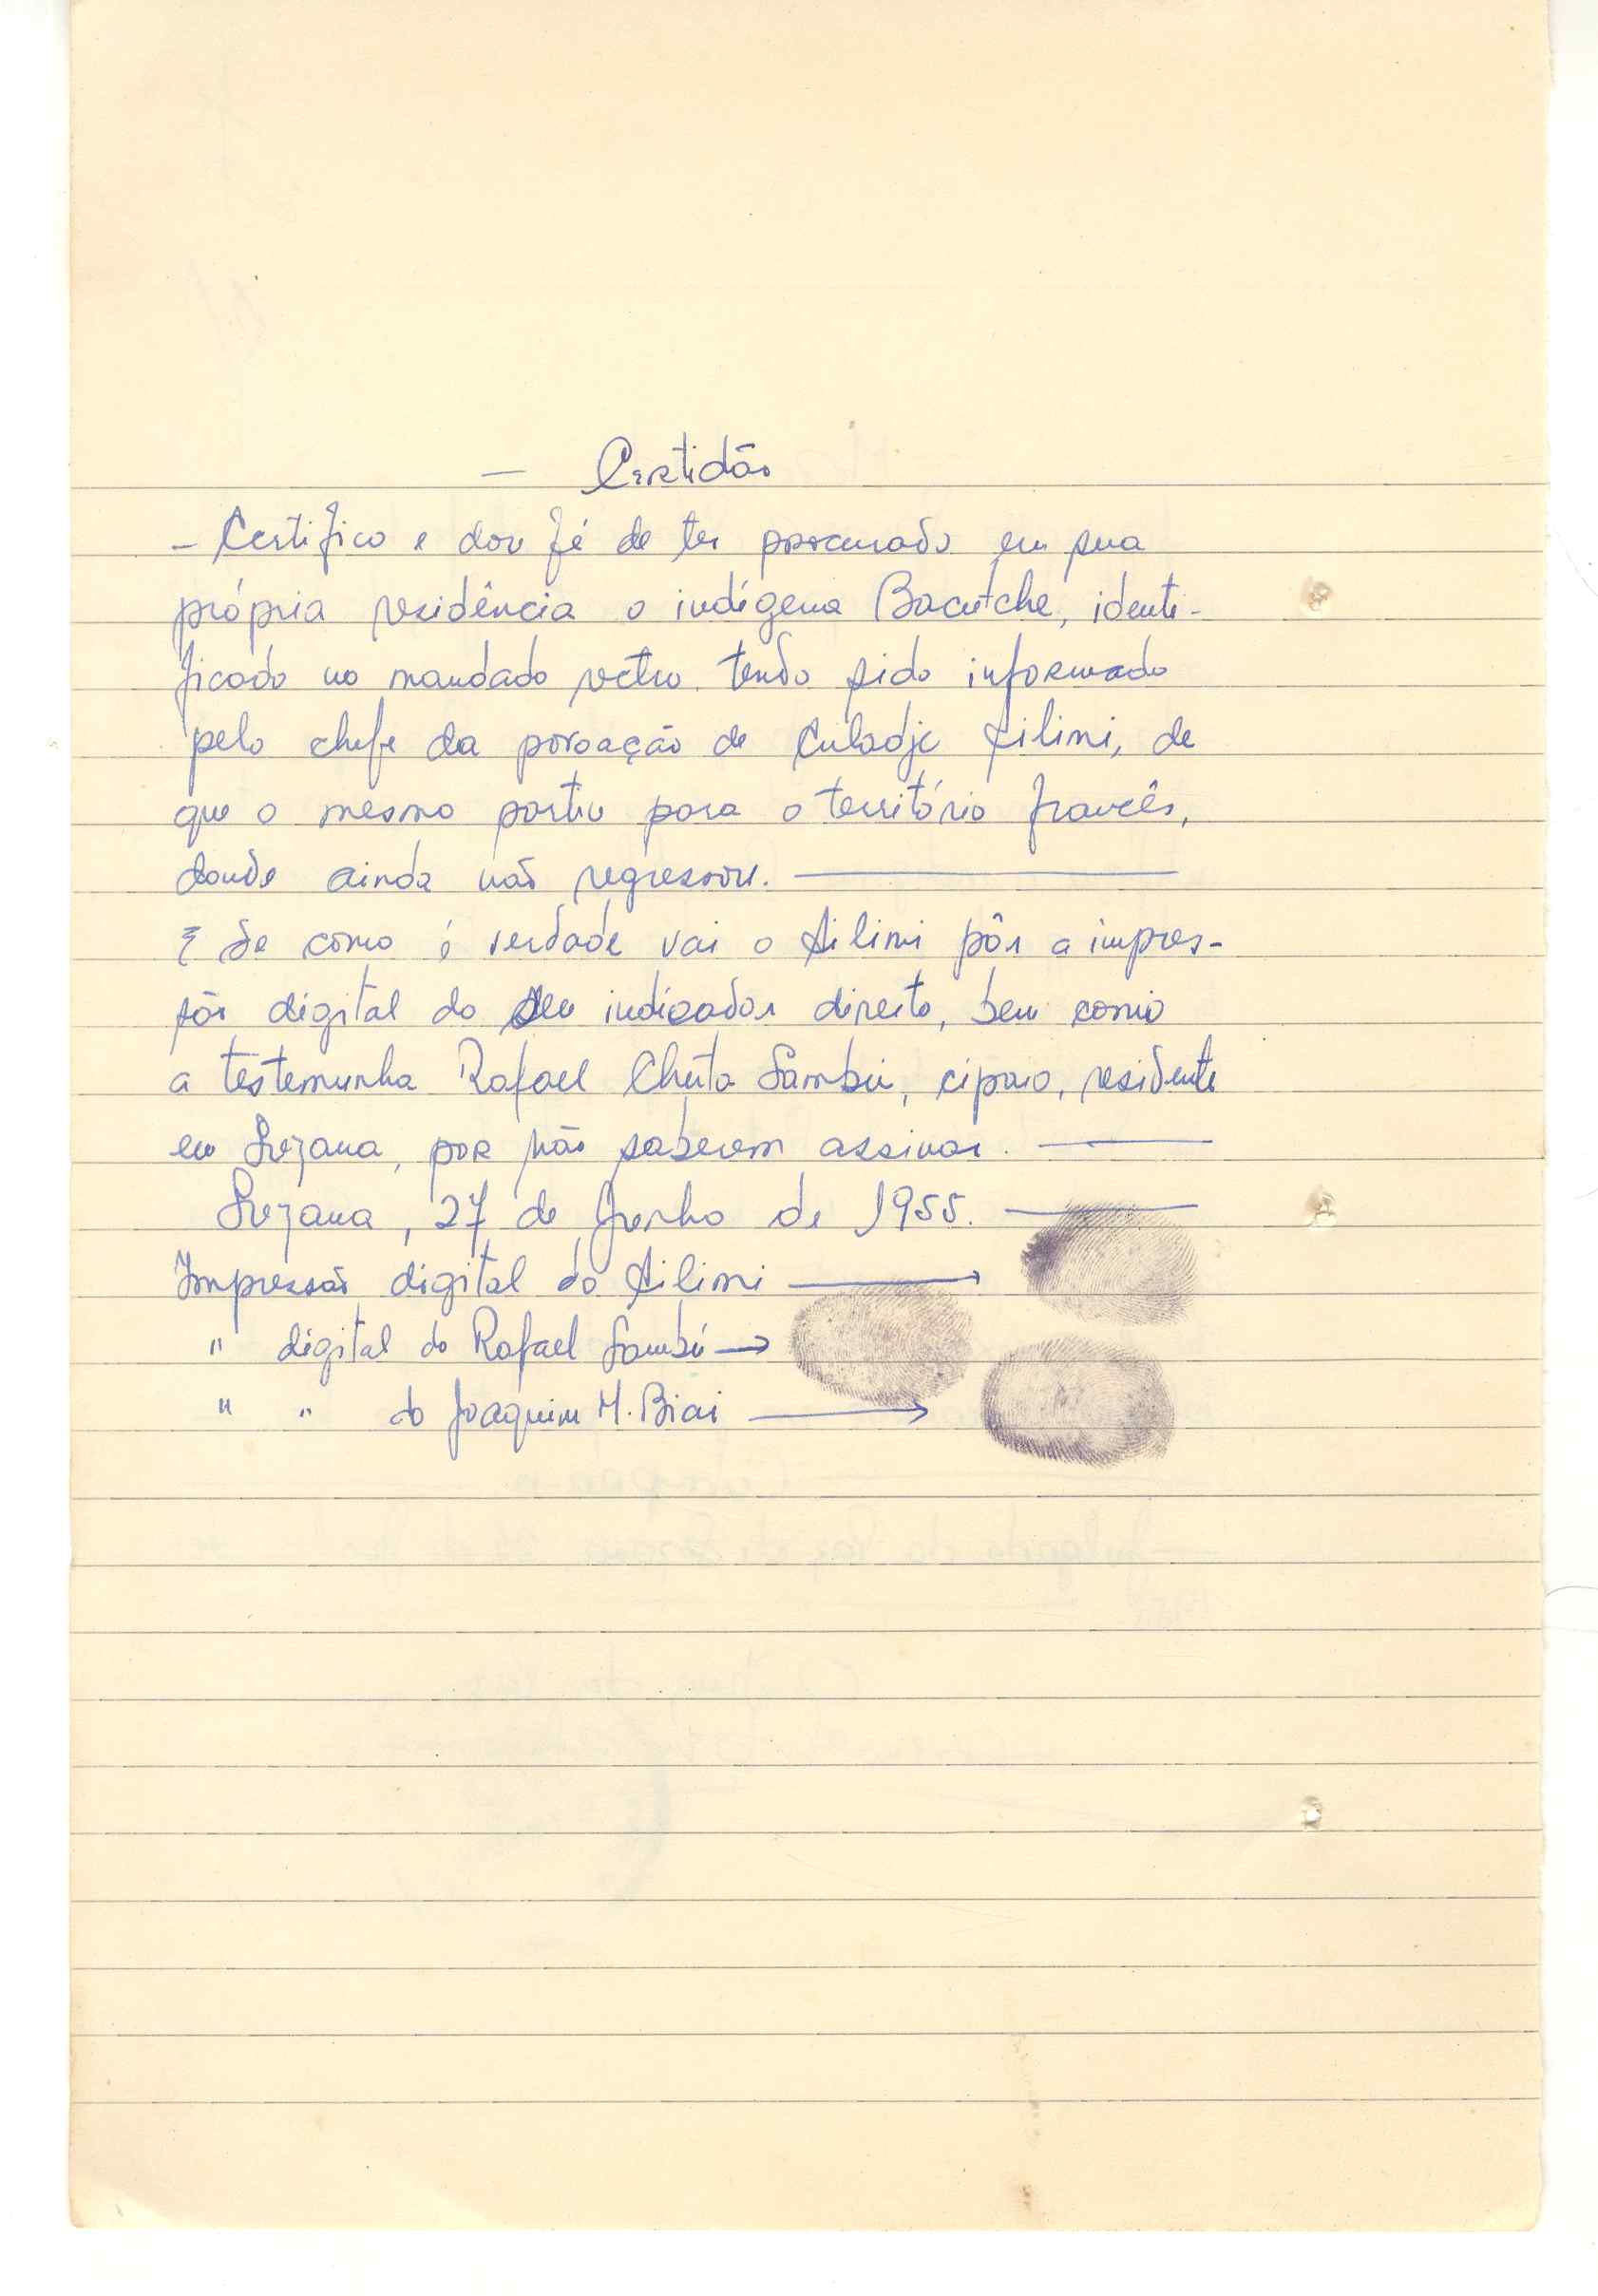 — Certidão
- Certifico e dou fé de ter procurado em sua
própria residência o indígena Bacutche, identi-
ficado no mandado retro tendo sido informado
pelo chefe da povoação de Culadje Ailimi, de
que o mesmo partiu para o território francês,
donde ainda não regressou. —
E de como é verdade vai o Ailimi pôr a impres-
são digital do seu indicador direito, bem como
a testemunha Rafael Sambú, cipaio, residente
em Suzana, por não saberem assinar. —
Suzana, 27 de Junho de 1955. —
Impressão digital do Ailimi →
" digital do Rafael Sambú →
" " do Joaquim M. Biai →